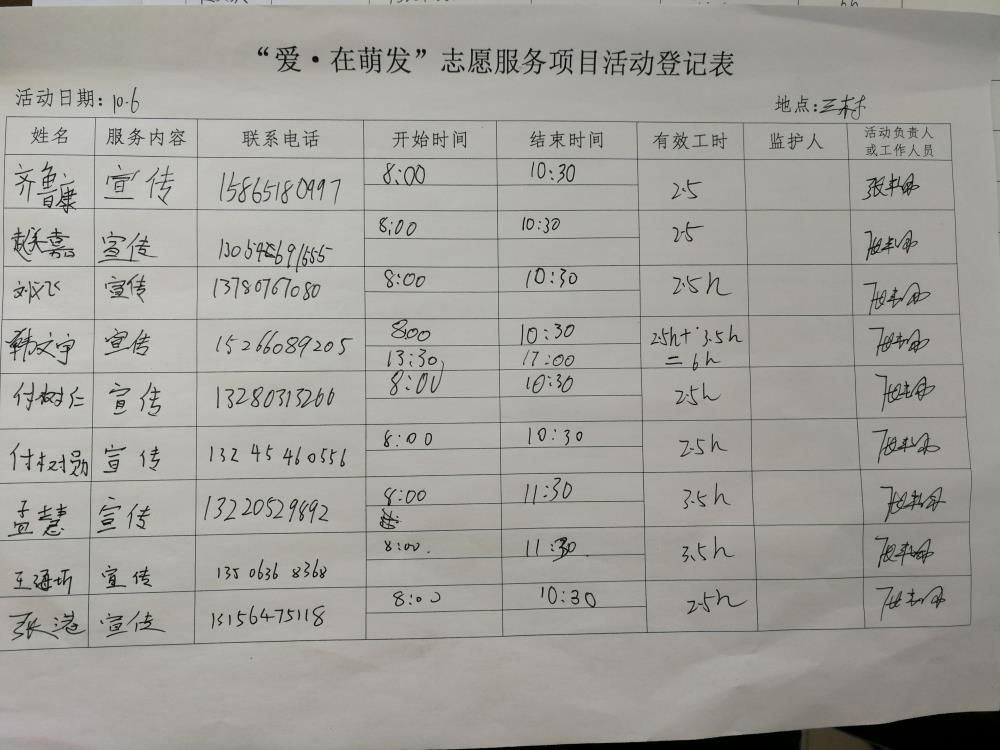 “爱·在萌发”志愿服务项目活动登记表
活动日期：10.6 地点：三村
姓名 服务内容 联系电话 开始时间 结束时间 有效工时 监护人 活动负责人或工作人员
齐鲁康 宣传 15865180997 8:00 10:30 2.5
宣传 8:00 10:30 2.5
刘汉飞 宣传 13780767080 8:00 10:30 2.5h
韩文宇 宣传 15266089205 8:00 10:30 2.5h+3.5h
13:30 17:00 =6h
付树仁 宣传 13280313266 8:00 10:30 2.5h
付树勋 宣传 13245460556 8:00 10:30 2.5h
孟慧 宣传 13220529892 8:00 11:30 3.5h
宣传 13506368368 8:00 11:30 3.5h
张港 宣传 13156475118 8:00 10:30 2.5h